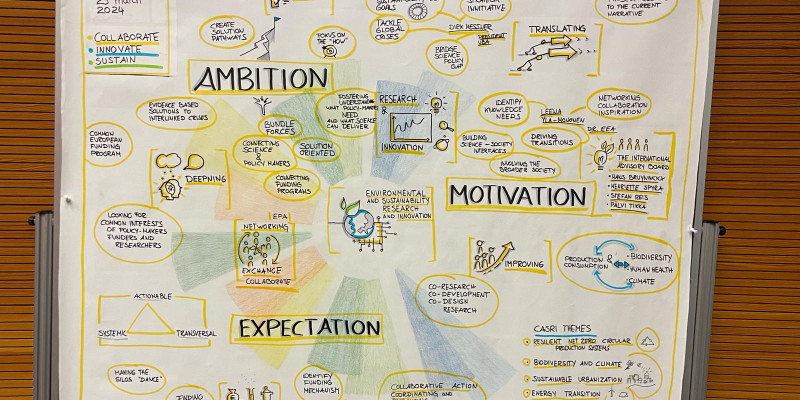 MARCH
2024
COLLABORATE
INNOVATE
SUSTAIN
CREATE
SOLUTION
PATHWAYS
FOCUS ON
THE "HOW"
GOALS
TACKLE
GLOBAL
CRISES
INITIATIVE
DIRK MESSLER
PRESIDENT
UBA
BRIDGE
SCIENCE
POLICY
GAP
TRANSLATING
TO THE CURRENT
NARRATIVE
AMBITION
EVIDENCE BASED
SOLUTIONS TO
INTERLINKED CRISES
COMMON
EUROPEAN
FUNDING
PROGRAM
DEEPNING
BUNDLE
FORCES
CONNECTING
SCIENCE
&
POLICY MAKERS
SOLUTION
ORIENTED
FOSTERING
UNDERSTANDING
WHAT POLICY-MAKERS
NEED
AND WHAT SCIENCE
CAN DELIVER
CONNECTING
FUNDING
PROGRAMS
RESEARCH
&
INNOVATION
IDENTIFY
KNOWLEDGE
NEEDS
LEENA
YLÄ-MONONEN
DR. EEA
NETWORKING
COLLABORATION
INSPIRATION
BUILDING
SCIENCE-SOCIETY
INTERFACES
DRIVING
TRANSITIONS
INVOLVING THE
BROADER SOCIETY
THE INTERNATIONAL
ADVISORY BOARD
• HANS BRUYNINCKX
• HENRIETTE SPYRA
• STEFAN REIS
• PÄLVI TIKKA
MOTIVATION
ENVIRONMENTAL
AND SUSTAINABILITY
RESEARCH
AND INNOVATION
LOOKING FOR
COMMON INTERESTS
OF POLICY-MAKERS
FUNDERS AND
RESEARCHERS
EPA
NETWORKING
EXCHANGE
COLLABORATE
IMPROVING
PRODUCTION &
CONSUMPTION
• BIODIVERSITY
• HUMAN HEALTH
• CLIMATE
CO-RESEARCH
CO-DEVELOPMENT
CO-DESIGN
RESEARCH
ACTIONABLE
SYSTEMIC
TRANSVERSAL
EXPECTATION
CASRI THEMES
RESILIENT NET ZERO CIRCULAR
PRODUCTION SYSTEMS
BIODIVERSITY AND CLIMATE
SUSTAINABLE URBANIZATION
ENERGY TRANSITION
MAKING THE
SILOS "DANCE"
FINDING
IDENTIFY
FUNDING
MECHANISM
COLLABORATIVE ACTION
COORDINATING AND